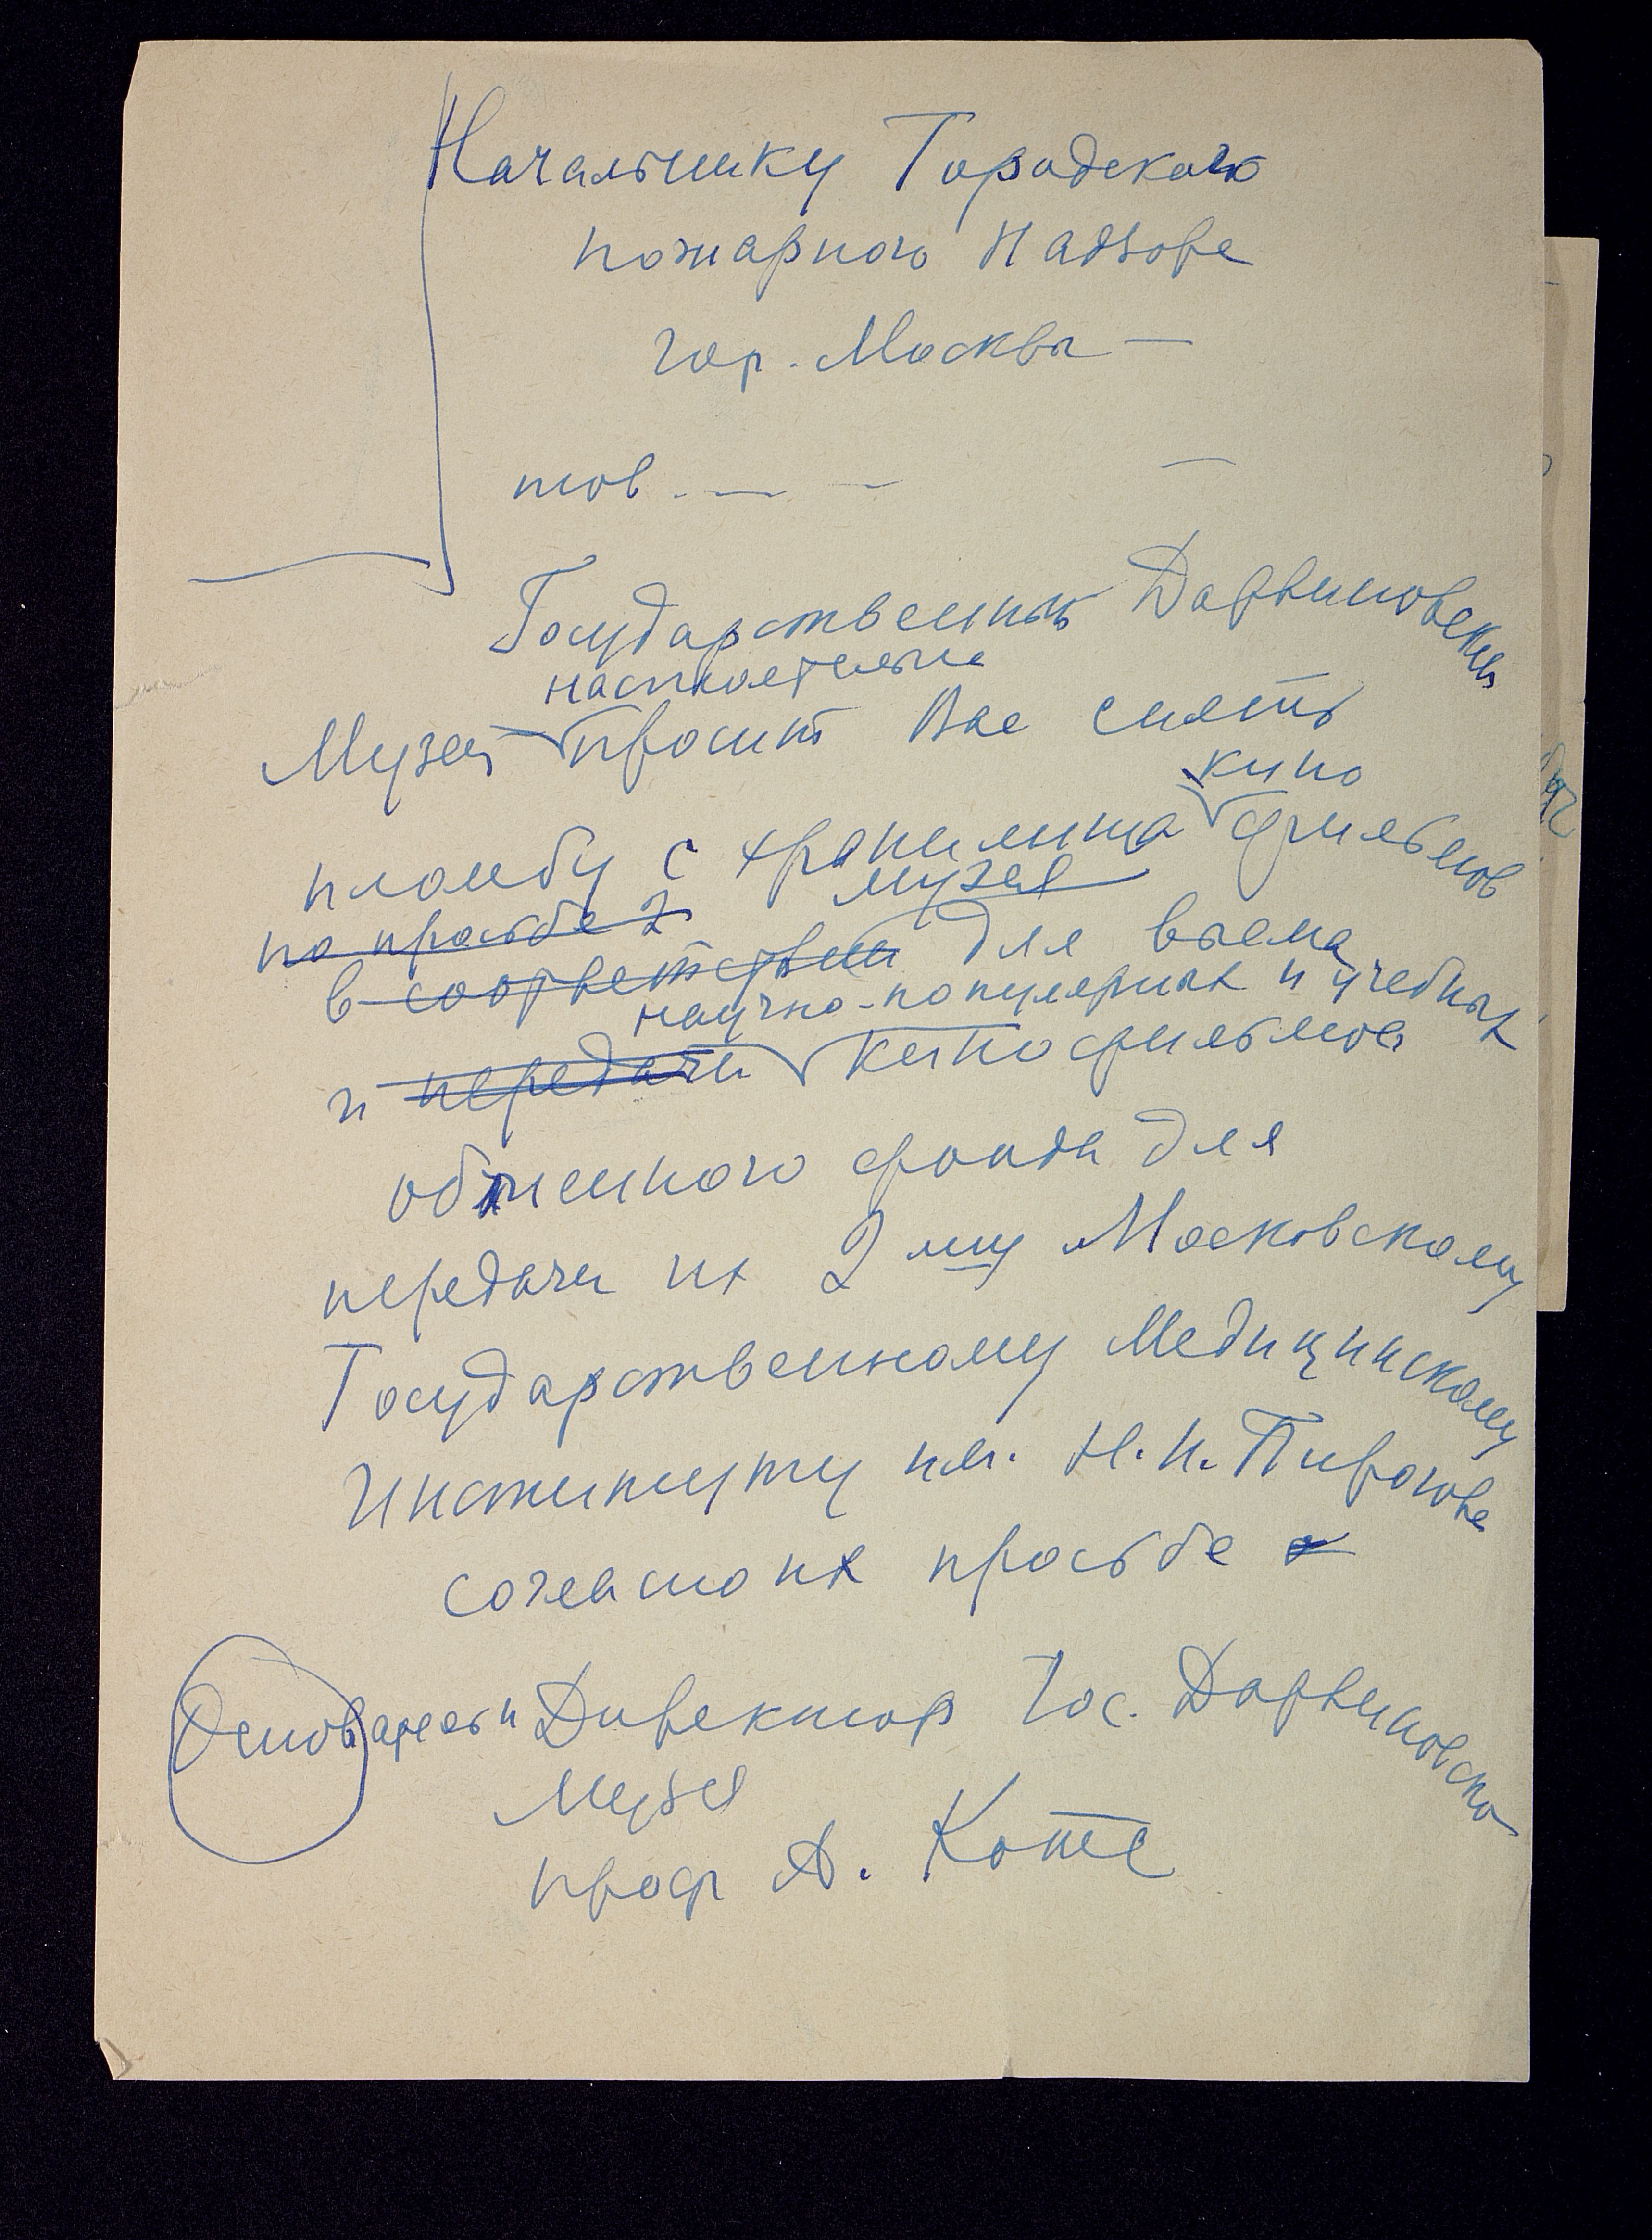 Начальнику Городского
пожарного Надзора
гор. Москвы —
тов. — — —
Государственный Дарвиновский
настоятельно
Музей просит Вас снять
кино
пломбу с хранилища фильмов
по просьбе 2
музея
в соответствии для выема
научно-популярных и учебных
и передачи кинофильмов
обменного фонда для
передачи их 2му Московскому
Государственному Медицинскому
Институту им. Н.И. Пирогова
согласно их просьбе
Основатель и Директор Гос. Дарвиновско
Музея
проф А. Котс